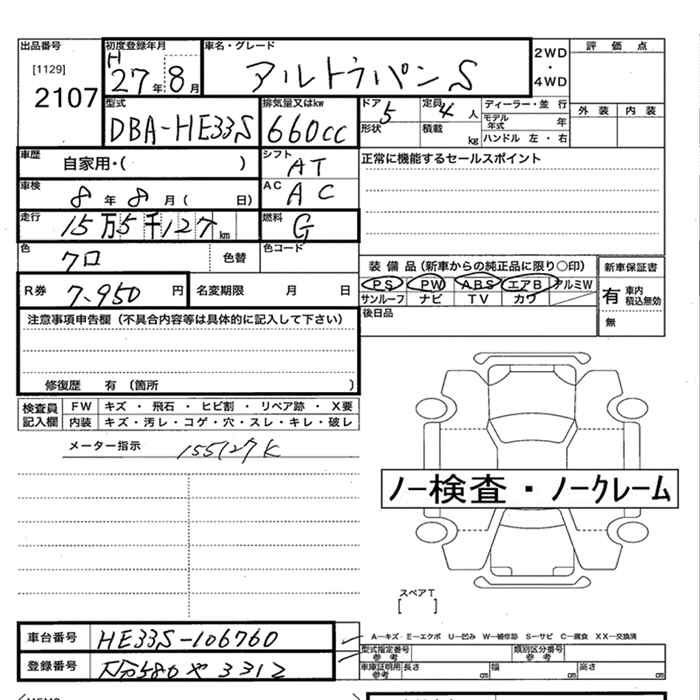 出品番号 初度登録年月 車名・グレード 2WD ・ 4WD 評価点
[1129] 2107 H 27年 8月 アルトラパンS
外装 内装
型式 排気量又はkw ドア 5 定員 4人 ディーラー・並行
DBA-HE33S 660cc 形状 積載 kg モデル年式 年 ハンドル 左・右
車歴 自家用・( ) シフト AT 正常に機能するセールスポイント
車検 8年 8月 ( 日) AC AC
走行 15万5千127km 燃料 G
色 クロ 色替 色コード
装備品(新車からの純正品に限り○印) 新車保証書
R券 7,950円 名変期限 月 日 PS PW ABS エアB アルミW 有 車内 積込無効
サンルーフ ナビ TV カワ
注意事項申告欄(不具合内容等は具体的に記入して下さい) 後日品 無
修復歴 有 (箇所 )
検査員記入欄 FW キズ・飛石・ヒビ割・リペア跡・X要
内装 キズ・汚レ・コゲ・穴・スレ・キレ・破レ
メーター指示 155127K
ノー検査・ノークレーム
スペアT
[ ]
車台番号 HE33S-106760 A-キズ E-エクボ U-凹み W-補修跡 S-サビ C-腐食 XX-交換済
型式指定番号 参考 類別区分番号 参考
登録番号 大分580や3312 車庫証明用 参考 長さ cm 幅 cm 高さ cm